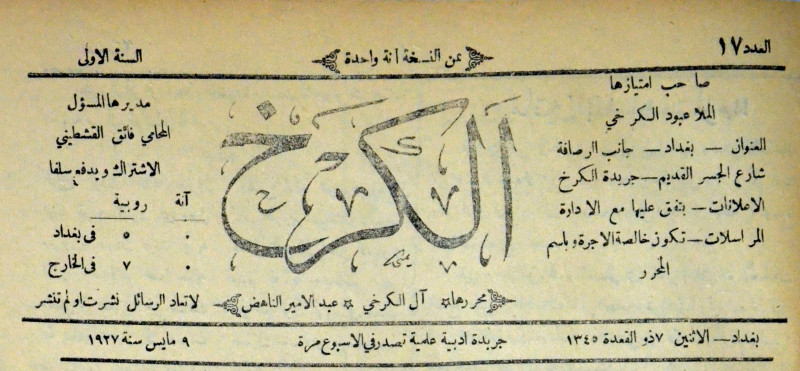 العدد ١٧
ثمن النسخة آنة واحدة
السنة الاولى
صاحب امتيازها
الملا عبود الكرخي
العنوان — بغداد — جانب الرصافة
شارع الجسر القديم — جريدة الكرخ
الاعلانات — يتفق عليها مع الادارة
المراسلات — تكون خالصة الاجرة وباسم
المحرر
الكرخ
محررها آل الكرخي * عبد الامير الناهض
مديرها المسؤل
المحامي فائق القشطيني
الاشتراك ويدفع سلفا
آنة روبية
٠ ٥ في بغداد
٠ ٧ في الخارج
لاتعاد الرسائل نشرت اولم تنشر
بغداد — الاثنين ٧ ذو القعدة ١٣٤٥
جريدة ادبية علمية تصدر في الاسبوع مرة
٩ مايس سنة ١٩٢٧